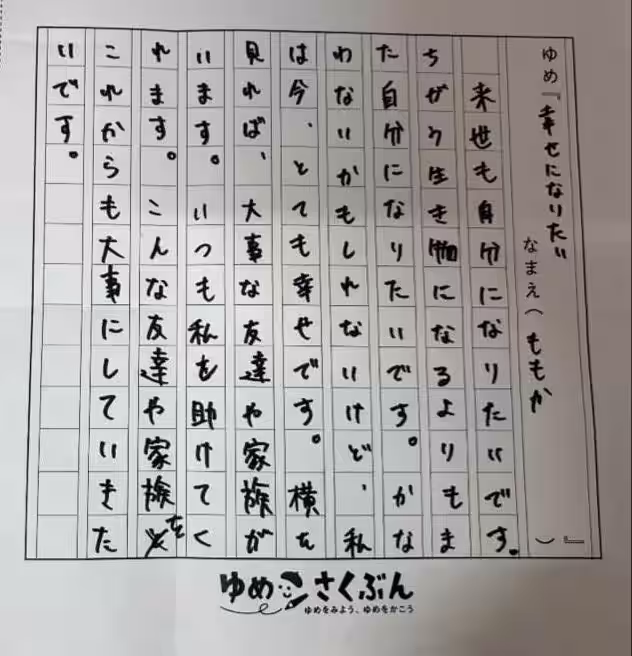 ゆめ『幸せになりたい』
なまえ(ももか)
来世も自分になりたいです。
ちがう生き物になるよりもま
た自分になりたいです。かな
わないかもしれないけど、私
は今、とても幸せです。横を
見れば、大事な友達や家族が
います。いつも私を助けてく
れます。こんな友達や家族を
これからも大事にしていきた
いです。
ゆめさくぶん
ゆめをみよう、ゆめをかこう